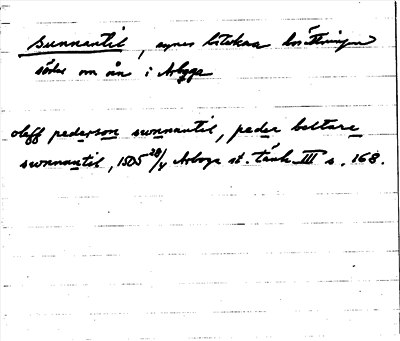 sunnantil, synes beteckna bosättningen
söder om ån i Arboga
oleff pederson swnnantil, peder beltare
swnnantil, 1505 28/4 Arboga st. tänk III s. 168.